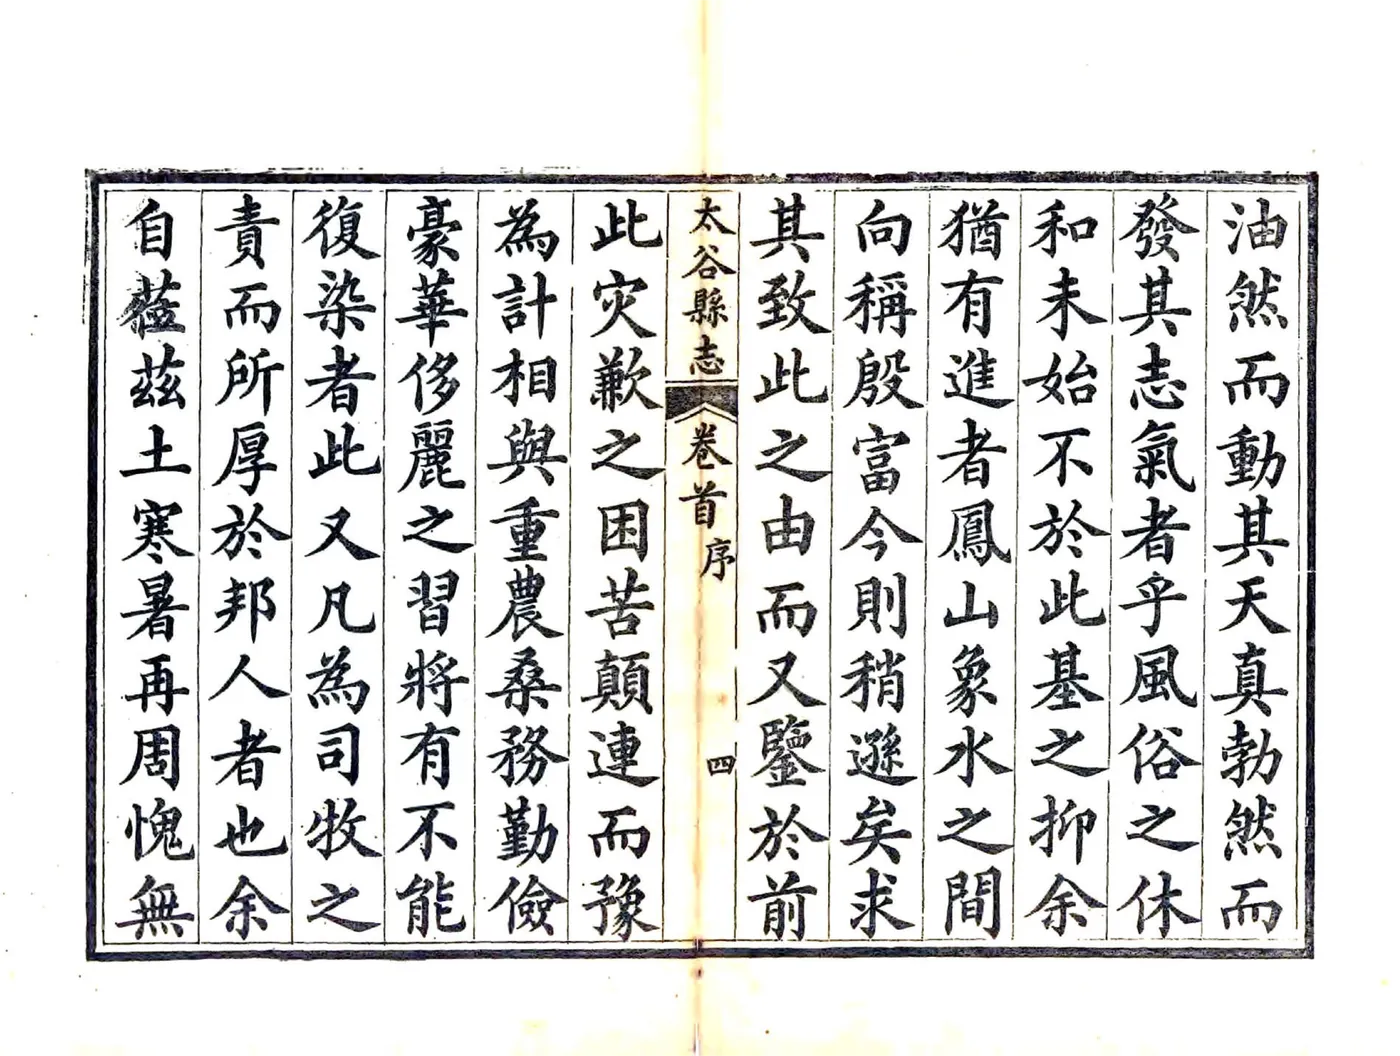 油然而動其天真勃然而
發其志氣者乎風俗之休
和未始不於此基之抑余
猶有進者鳳山象水之間
向稱殷富今則稍遜矣求
其致此之由而又鑒於前
太谷縣志 卷首 序 四
此灾歉之困苦顛連而豫
為計相與重農桑務勤儉
豪華侈麗之習將有不能
復染者此又凡為司牧之
責而所厚於邦人者也余
自蒞茲土寒暑再周愧無